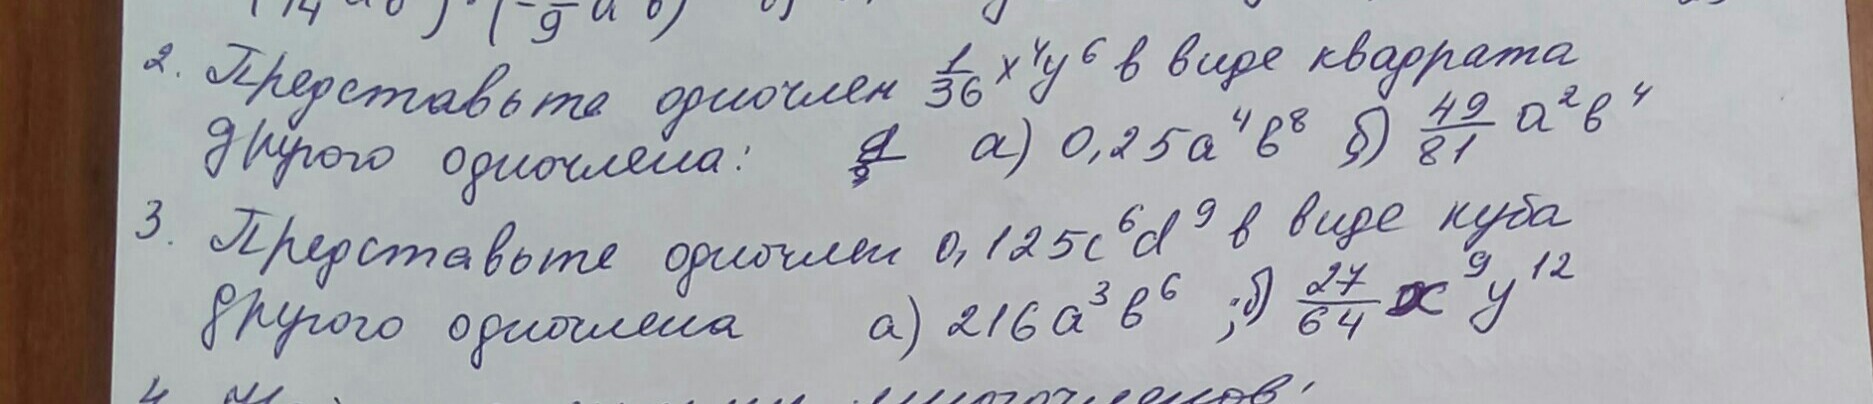 2. Представьте одночлен 1/36 x⁴y⁶ в виде квадрата
другого одночлена: а) 0,25a⁴b⁸ б) 49/81 a²b⁴
3. Представьте одночлен 0,125c⁶d⁹ в виде куба
другого одночлена а) 216a³b⁶ ; б) 27/64 x⁹y¹²
4. многочленов: